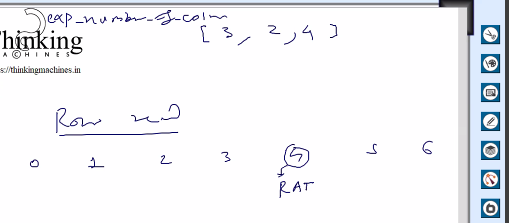 exp_number_of_colm
[ 3, 2, 4 ]
Thinking
MACHINES
s://thinkingmachines.in
Row
0 1 2 3 4 5 6
RAT